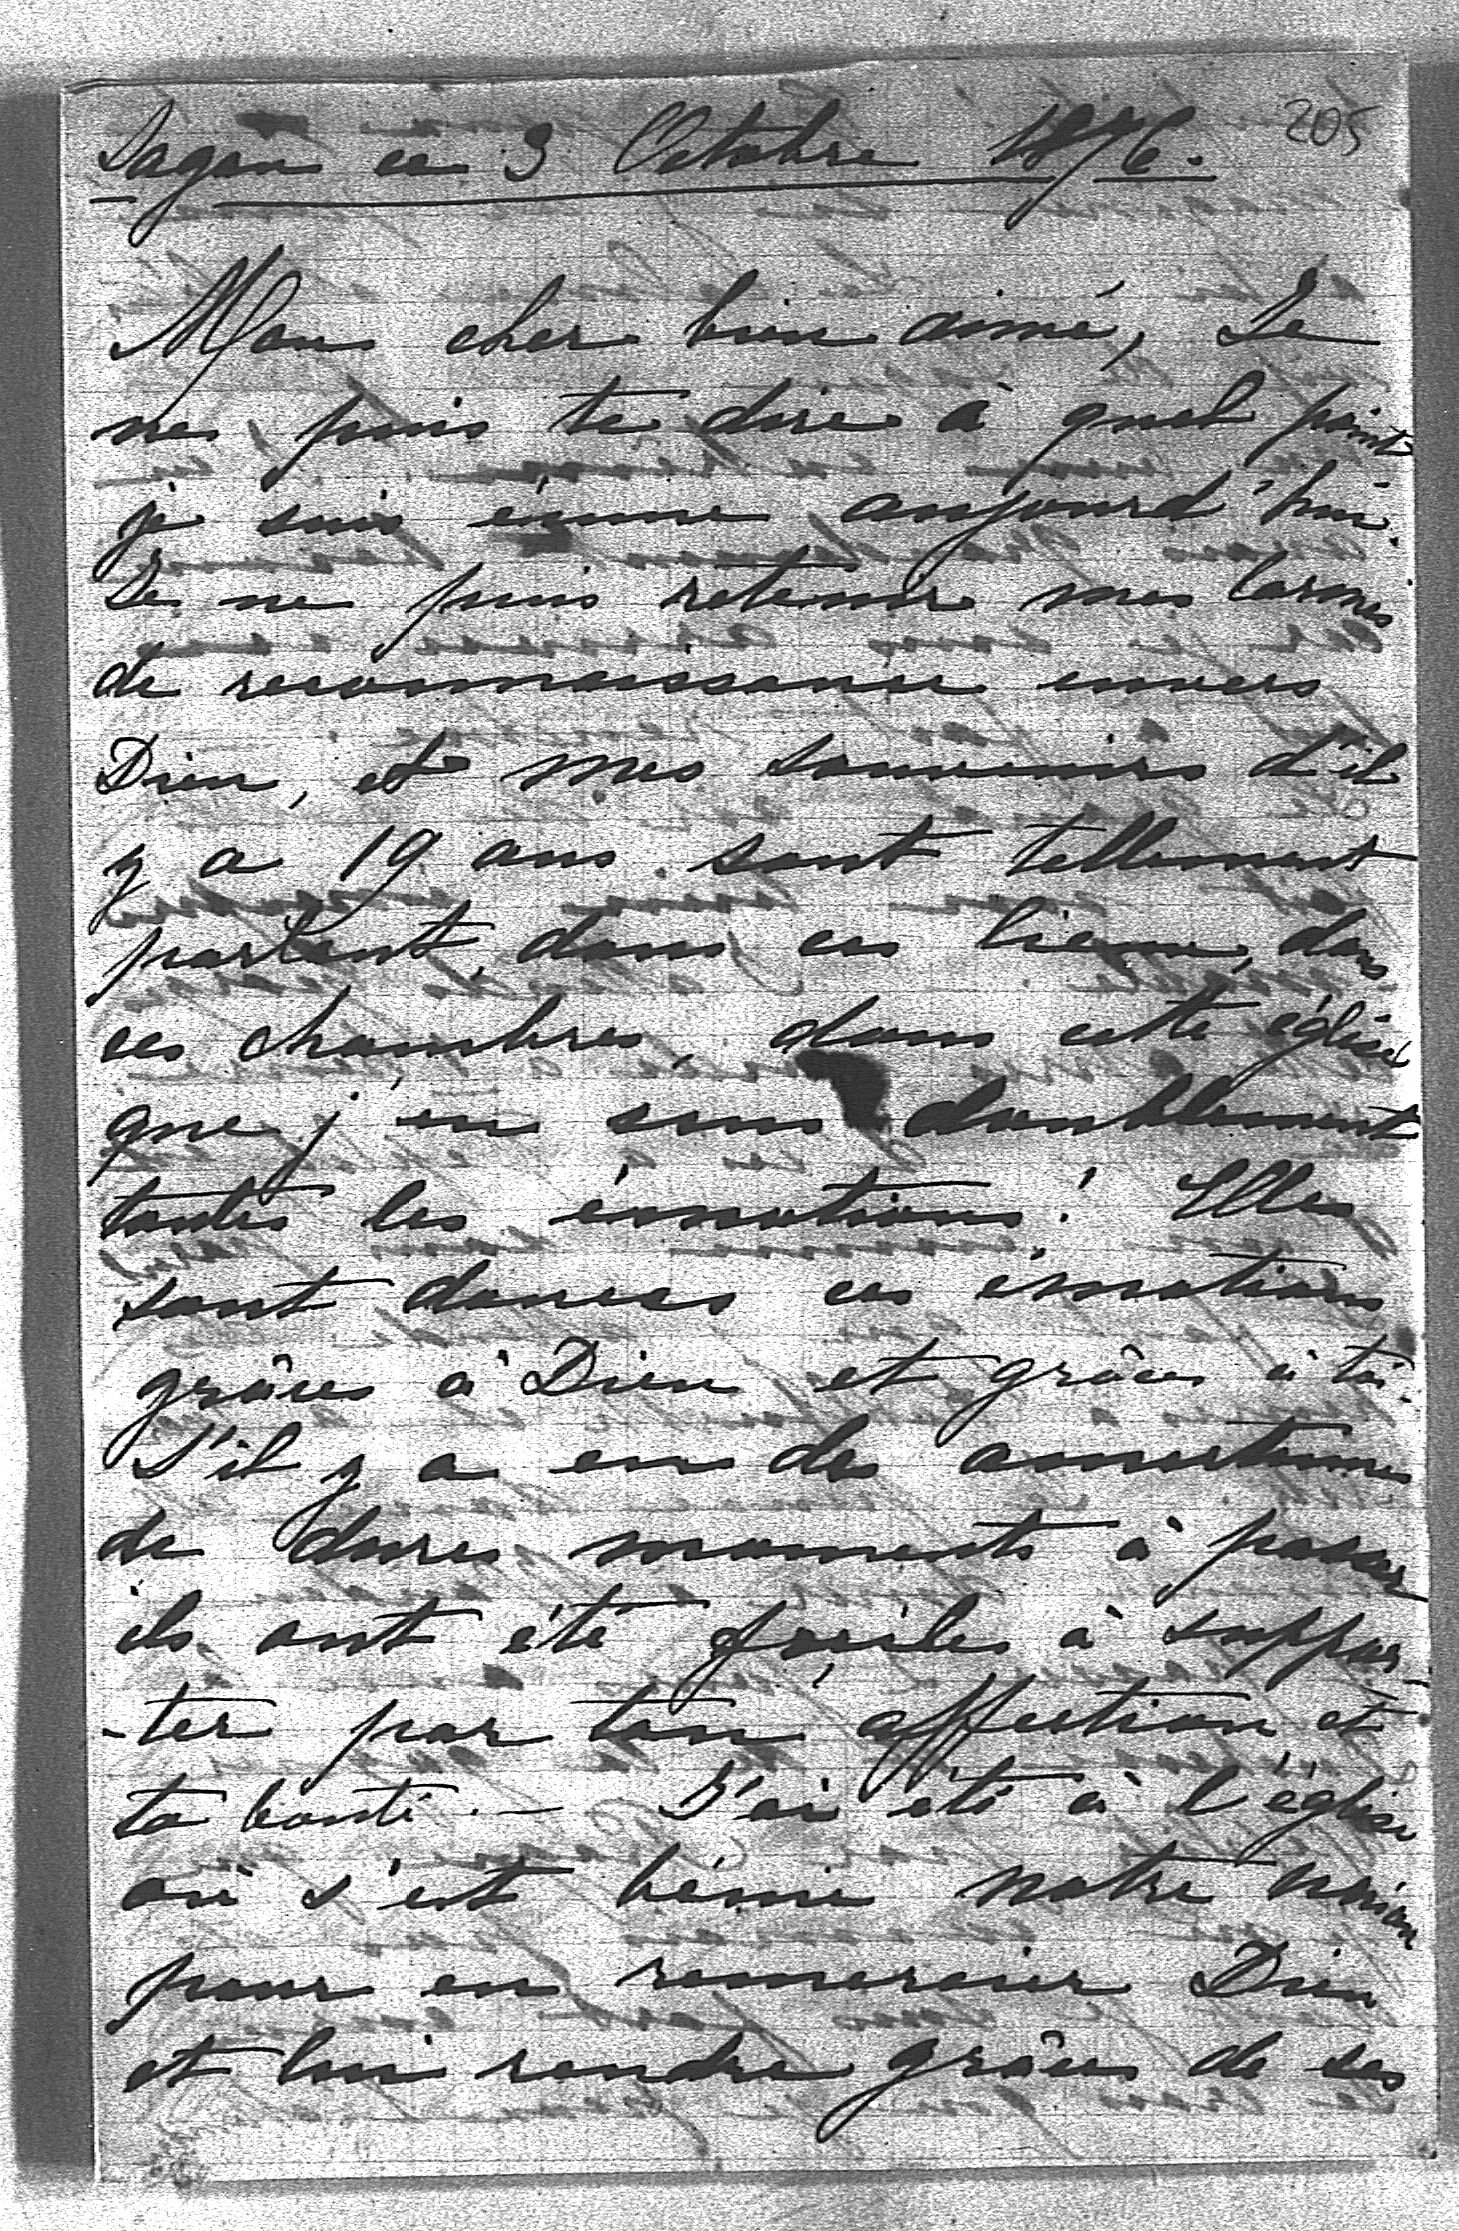 205
Sagan ce 3 Octobre 1876.
Mon cher bien aimé, Je
ne puis te dire à quel point
je suis émue aujourd'hui.
Je ne puis retenir mes larmes
de reconnaissance envers
Dieu, et mes souvenirs d'il
y a 19 ans sont tellement
partout, dans ces lieux, dans
ces chambres, dans cette église
que j'en sens doublement
toutes les émotions! Elles
sont douces ces émotions
grâces à Dieu et grâces à toi.
S'il y a eu des amertumes
de durs moments à passer
ils ont été faciles à suppor-
-ter par ton affection et
ta bonté. — J'ai été à l'église
où s'est bénie notre union
pour en remercier Dieu
et lui rendre grâces de ses